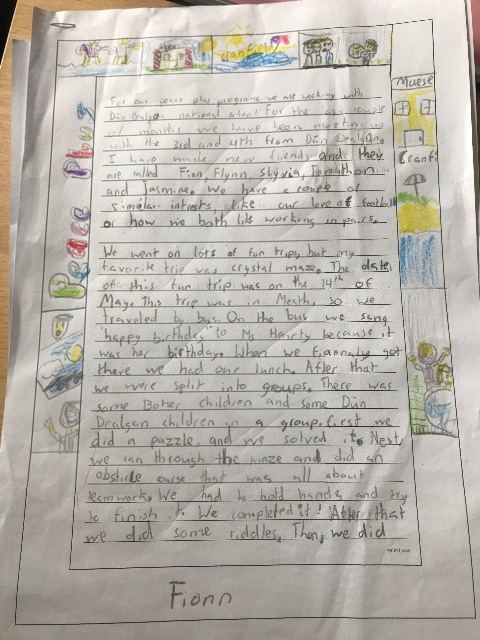 cranfield
Muese
Cranfi
For our peace plus programe we are working with
Dún Dealgan national school for the last couple
of months we have been meeting up
with the 3rd and 4th from Dún Dealgan.
I have made new friends and they
are called Finn, Flynn, Slyvia, Jonathon
and Jasmine. We have a couple of
similar intrests, like our love of football
or how we both like working in pairs.
We went on lots of fun trips, but my
favorite trip was crystal maze. The date
of this fun trip was on the 14th of
May. This trip was in Meath, so we
traveled by bus. On the bus we sang
'happy birthday' to Ms Hearty because it
was her birthday. When we fiannaly got
there we had our lunch. After that
we were split into groups. There was
some Boher children and some Dún
Dealgan children in a group. first we
did a puzzle and we solved it. Next
we ran through the maze and did an
obsticle course that was all about
teamwork. We had to hold hands and try
to finish it. We completed it! After that
we did some riddles. Then, we did
Fionn